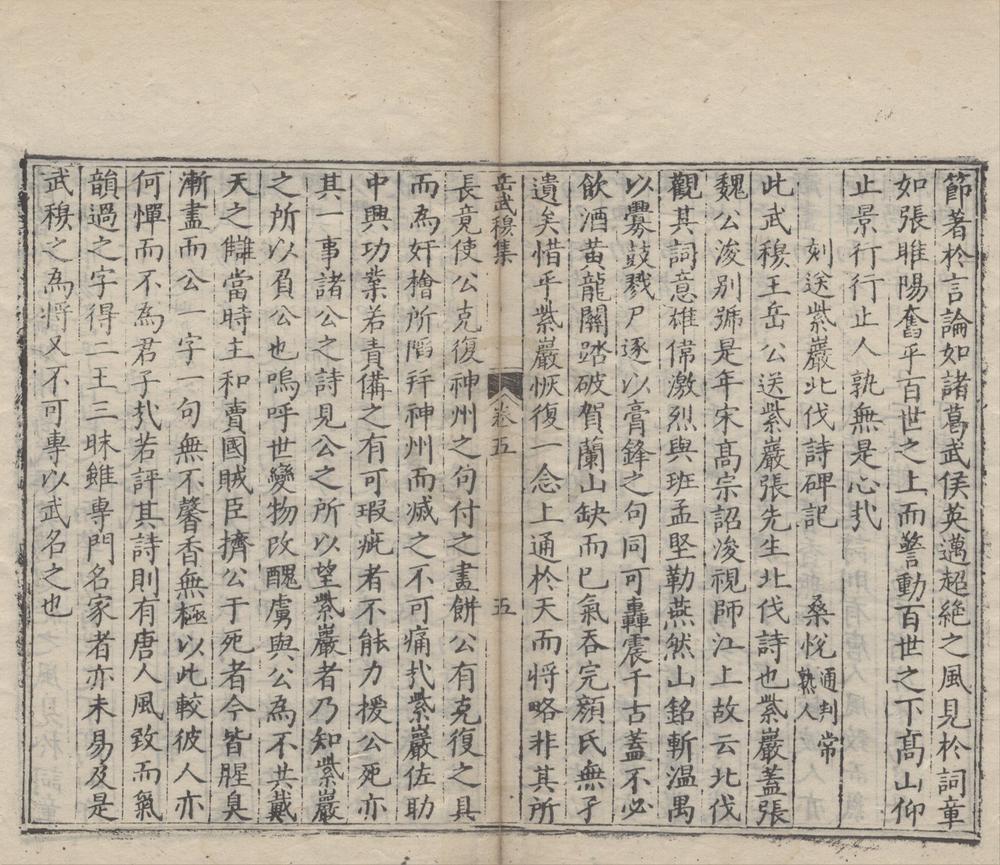 節著於言論如諸葛武侯英邁超絶之風見於詞章
如張睢陽奮乎百世之上而警動百世之下髙山仰
止景行行止人孰無是心㢤
刻送紫巖北伐詩碑記　桑悅通判常熟人
此武穆王岳公送紫巖張先生北伐詩也紫巖蓋張
魏公浚别號是年宋髙宗詔浚視師江上故云北伐
觀其詞意雄偉激烈與班孟堅勒燕然山銘斬温禺
以釁鼓戮尸逐以膏鋒之句同可轟震千古蓋不必
飲酒黄龍關踏破賀蘭山缺而巳氣吞完顔氏無孑
遺矣惜乎紫巖恢復一念上通於天而將略非其所
岳武穆集　卷五　五
長竟使公克復神州之句付之畫餅公有克復之具
而為奸檜所䧟幷神州而滅之不可痛㢤紫巖佐助
中興功業若責備之有可瑕疵者不能力援公死亦
其一事諸公之詩見公之所以望紫巖者乃知紫巖
之所以負公也嗚呼世變物改醜虜與公為不共戴
天之讎當時主和賣國賊臣擠公于死者今皆腥臭
漸盡而公一字一句無不馨香無極以此較彼人亦
何憚而不為君子㢤若評其詩則有唐人風致而氣
韻過之字得二王三昧雖專門名家者亦未易及是
武穆之為將又不可專以武名之也